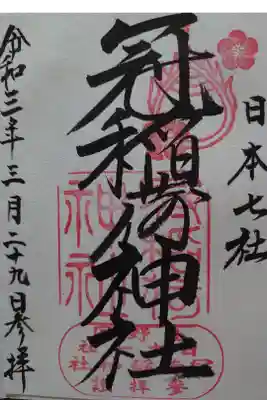 日本七社
冠稲荷神社
令和三年三月二十九日参拝